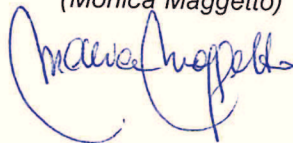 (Monica Maggetto)
Monica Maggetto